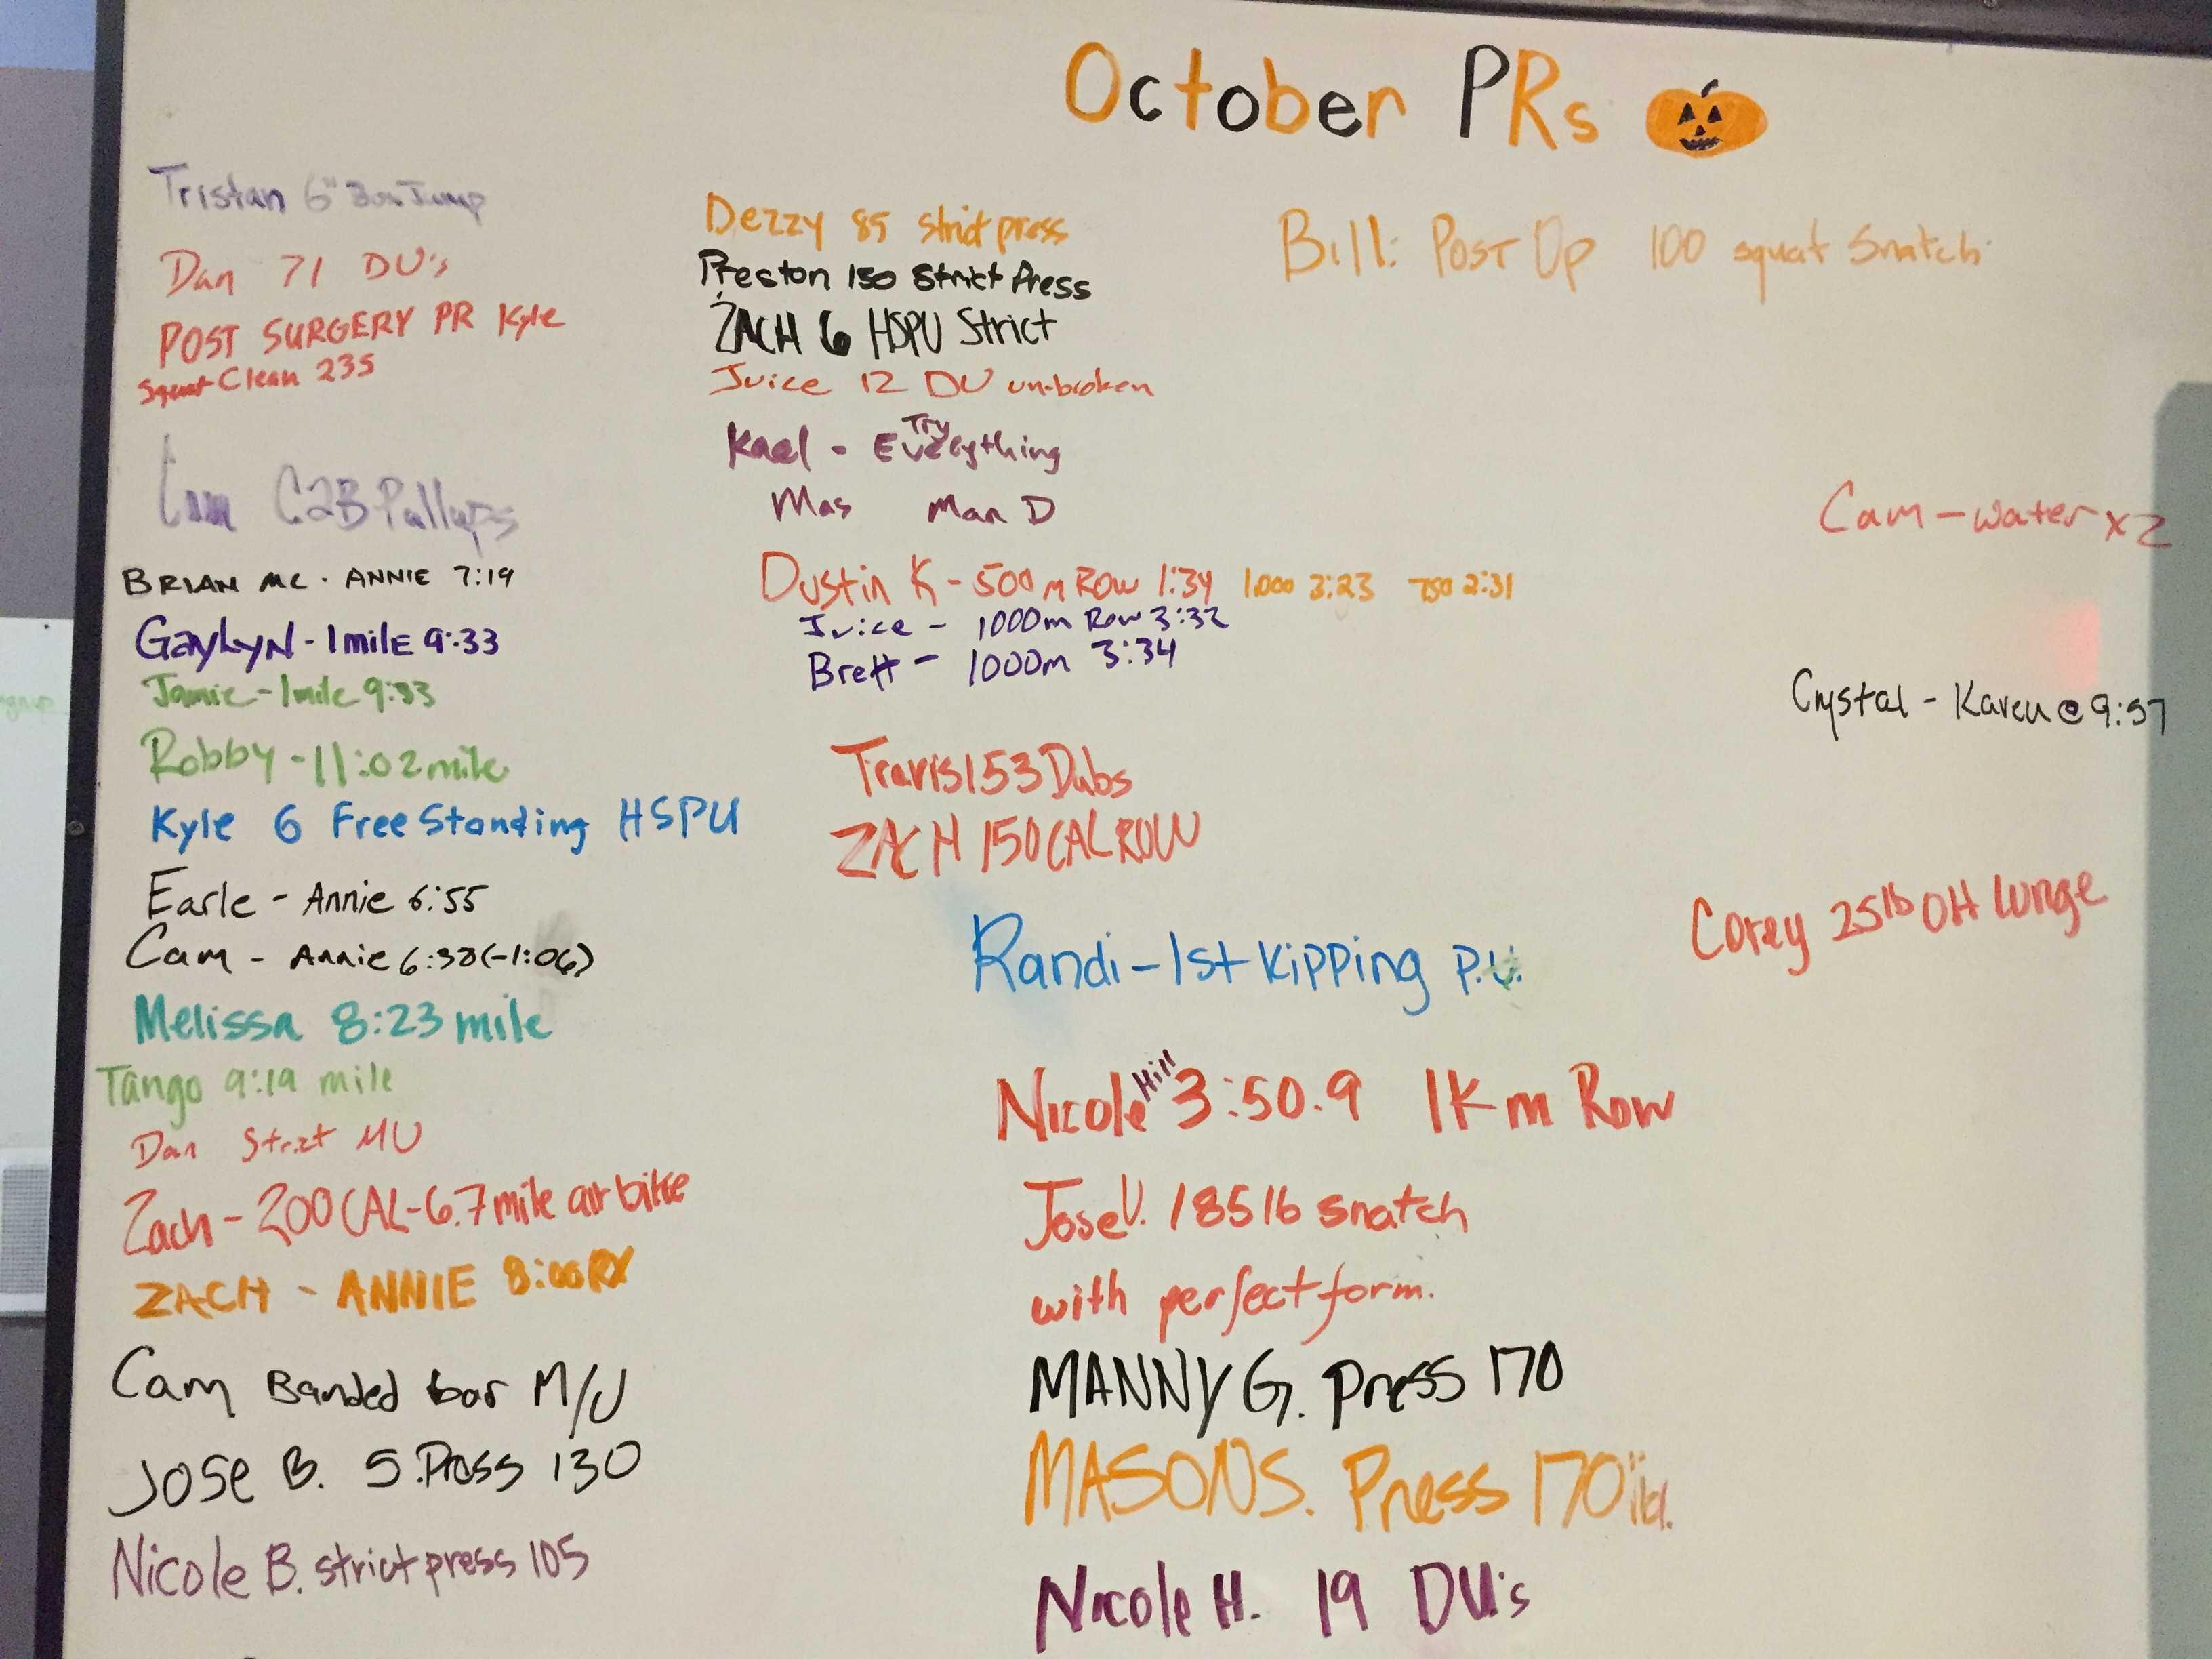 October PRs
Tristan 6" Box Jump
Dan 71 DU's
POST SURGERY PR Kyle
Squat Clean 235
Cam C2B Pullups
BRIAN MC. ANNIE 7:19
GayLyN - 1 milE 9:33
Jamie - 1 mile 9:33
Robby - 11:02 mile
Kyle 6 Free Standing HSPU
Earle - Annie 6:55
Cam - Annie 6:38 (-1:06)
Melissa 8:23 mile
Tango 9:19 mile
Dan Strict MU
Zach - 200 CAL - 6.7 mile air bike
ZACH - ANNIE 8:00 RX
Cam Banded bar M/U
JOSE B. S.Press 130
Nicole B. strict press 105
Dezzy 85 strict press
Preston 150 Strict Press
ZACH 6 HSPU Strict
Juice 12 DU un-broken
Kael - Try Everything
Mas Man D
Dustin K - 500m Row 1:34 1,000 3:23 750 2:31
Juice - 1000m Row 3:32
Brett - 1000m 3:34
Travis 153 Dubs
ZACH 150 CAL ROW
Randi - 1st Kipping P.U.
Nicole Hill 3:50.9 1Km Row
Jose V. 185 lb snatch
with perfect form.
MANNY G. Press 170
MASON S. Press 170
Nicole H. 19 DU's
Bill: Post Op 100 squat Snatch
Cam - water x 2
Crystal - Karen @ 9:57
Corey 25lb OH Lunge